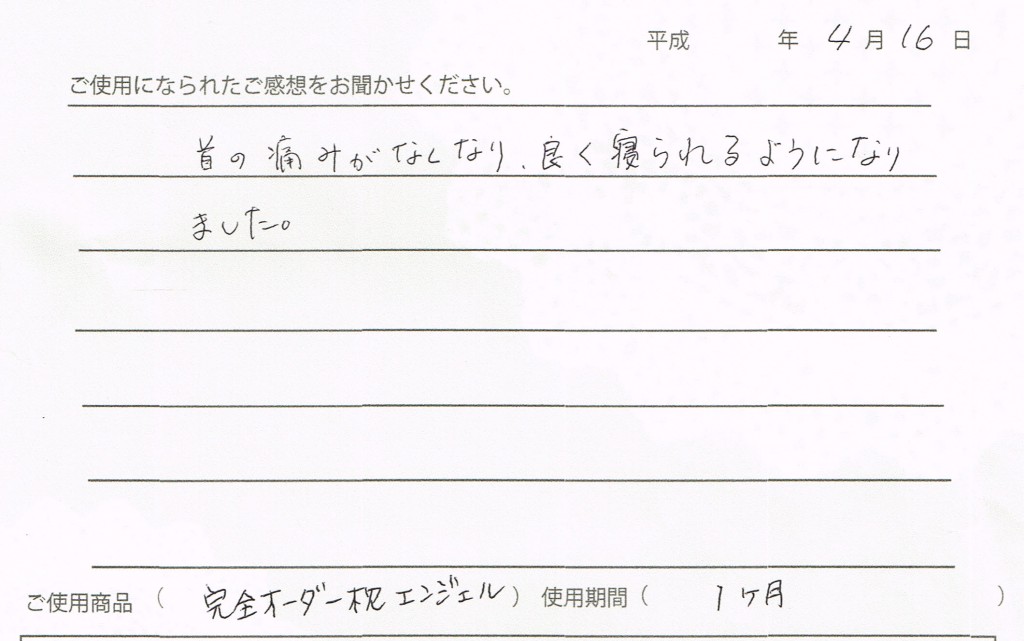 平成　　　年 4 月 16 日
ご使用になられたご感想をお聞かせください。
首の痛みがなくなり、良く寝られるようになり
ました。
ご使用商品（ 完全オーダー枕エンジェル ） 使用期間（ 1ヶ月 ）